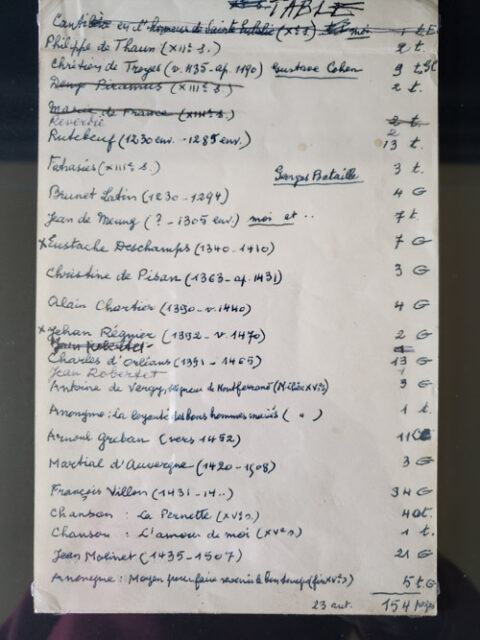 TABLE
Cantilène en l'honneur de Sainte Eulalie (Xe s.) moi 1 t.
Philippe de Thaun (XIIe s.) 2 t.
Chrétien de Troyes (v. 1135-ap. 1190) Gustave Cohen 9 t.
Deux Piramus (XIIIe s.) 2 t.
Marie de France (XIIIe s.) 2 t.
Reverdie 2
Rutebeuf (1230 env. - 1285 env.) 13 t.
Fatrasies (XIIIe s.) Georges Bataille 3 t.
Brunet Latin (1230-1294) 4 G
Jean de Meung (? - 1305 env.) moi et .. 7 t.
x Eustache Deschamps (1340-1410) 7 G
Christine de Pisan (1363-ap. 1431) 3 G
Alain Chartier (1390-v. 1440) 4 G
x Jehan Régnier (1392-v. 1470) 2 G
Jean Robertet 1
Charles d'Orléans (1391-1465) 13 G
Jean Robertet 1
Antoine de Vergy, seigneur de Montferrand (XVe s) 3 G
Anonyme : la loyauté des bons hommes mariés ( " ) 1 t.
Arnoul Greban (vers 1452) 11
Martial d'Auvergne (1420-1508) 3 G
François Villon (1431-14..) 34 G
Chanson : La Pernette (XVe s) 4 t.
Chanson : L'amour de moi (XVe s) 1 t.
Jean Molinet (1435-1507) 21 G
Anonyme : Moyen pour faire revenir le bon temps (fin XVe s) 5 t. G
23 aut. 154 pages